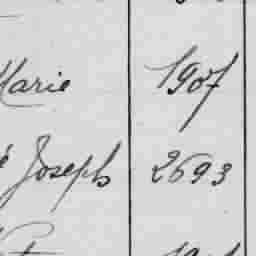 Marie 1907
Joseph 2693